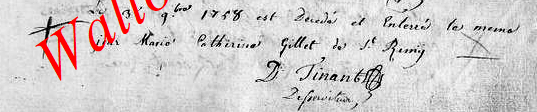 3 9bre 1758 est Decedé et Enterré le meme
jour Marie Catherine Gillet de St Remy
D Tinant
Desserviteur
Wallo